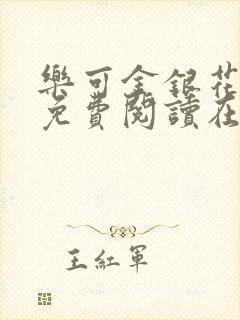 樂可金銀花
免費閱讀在
王紅軍